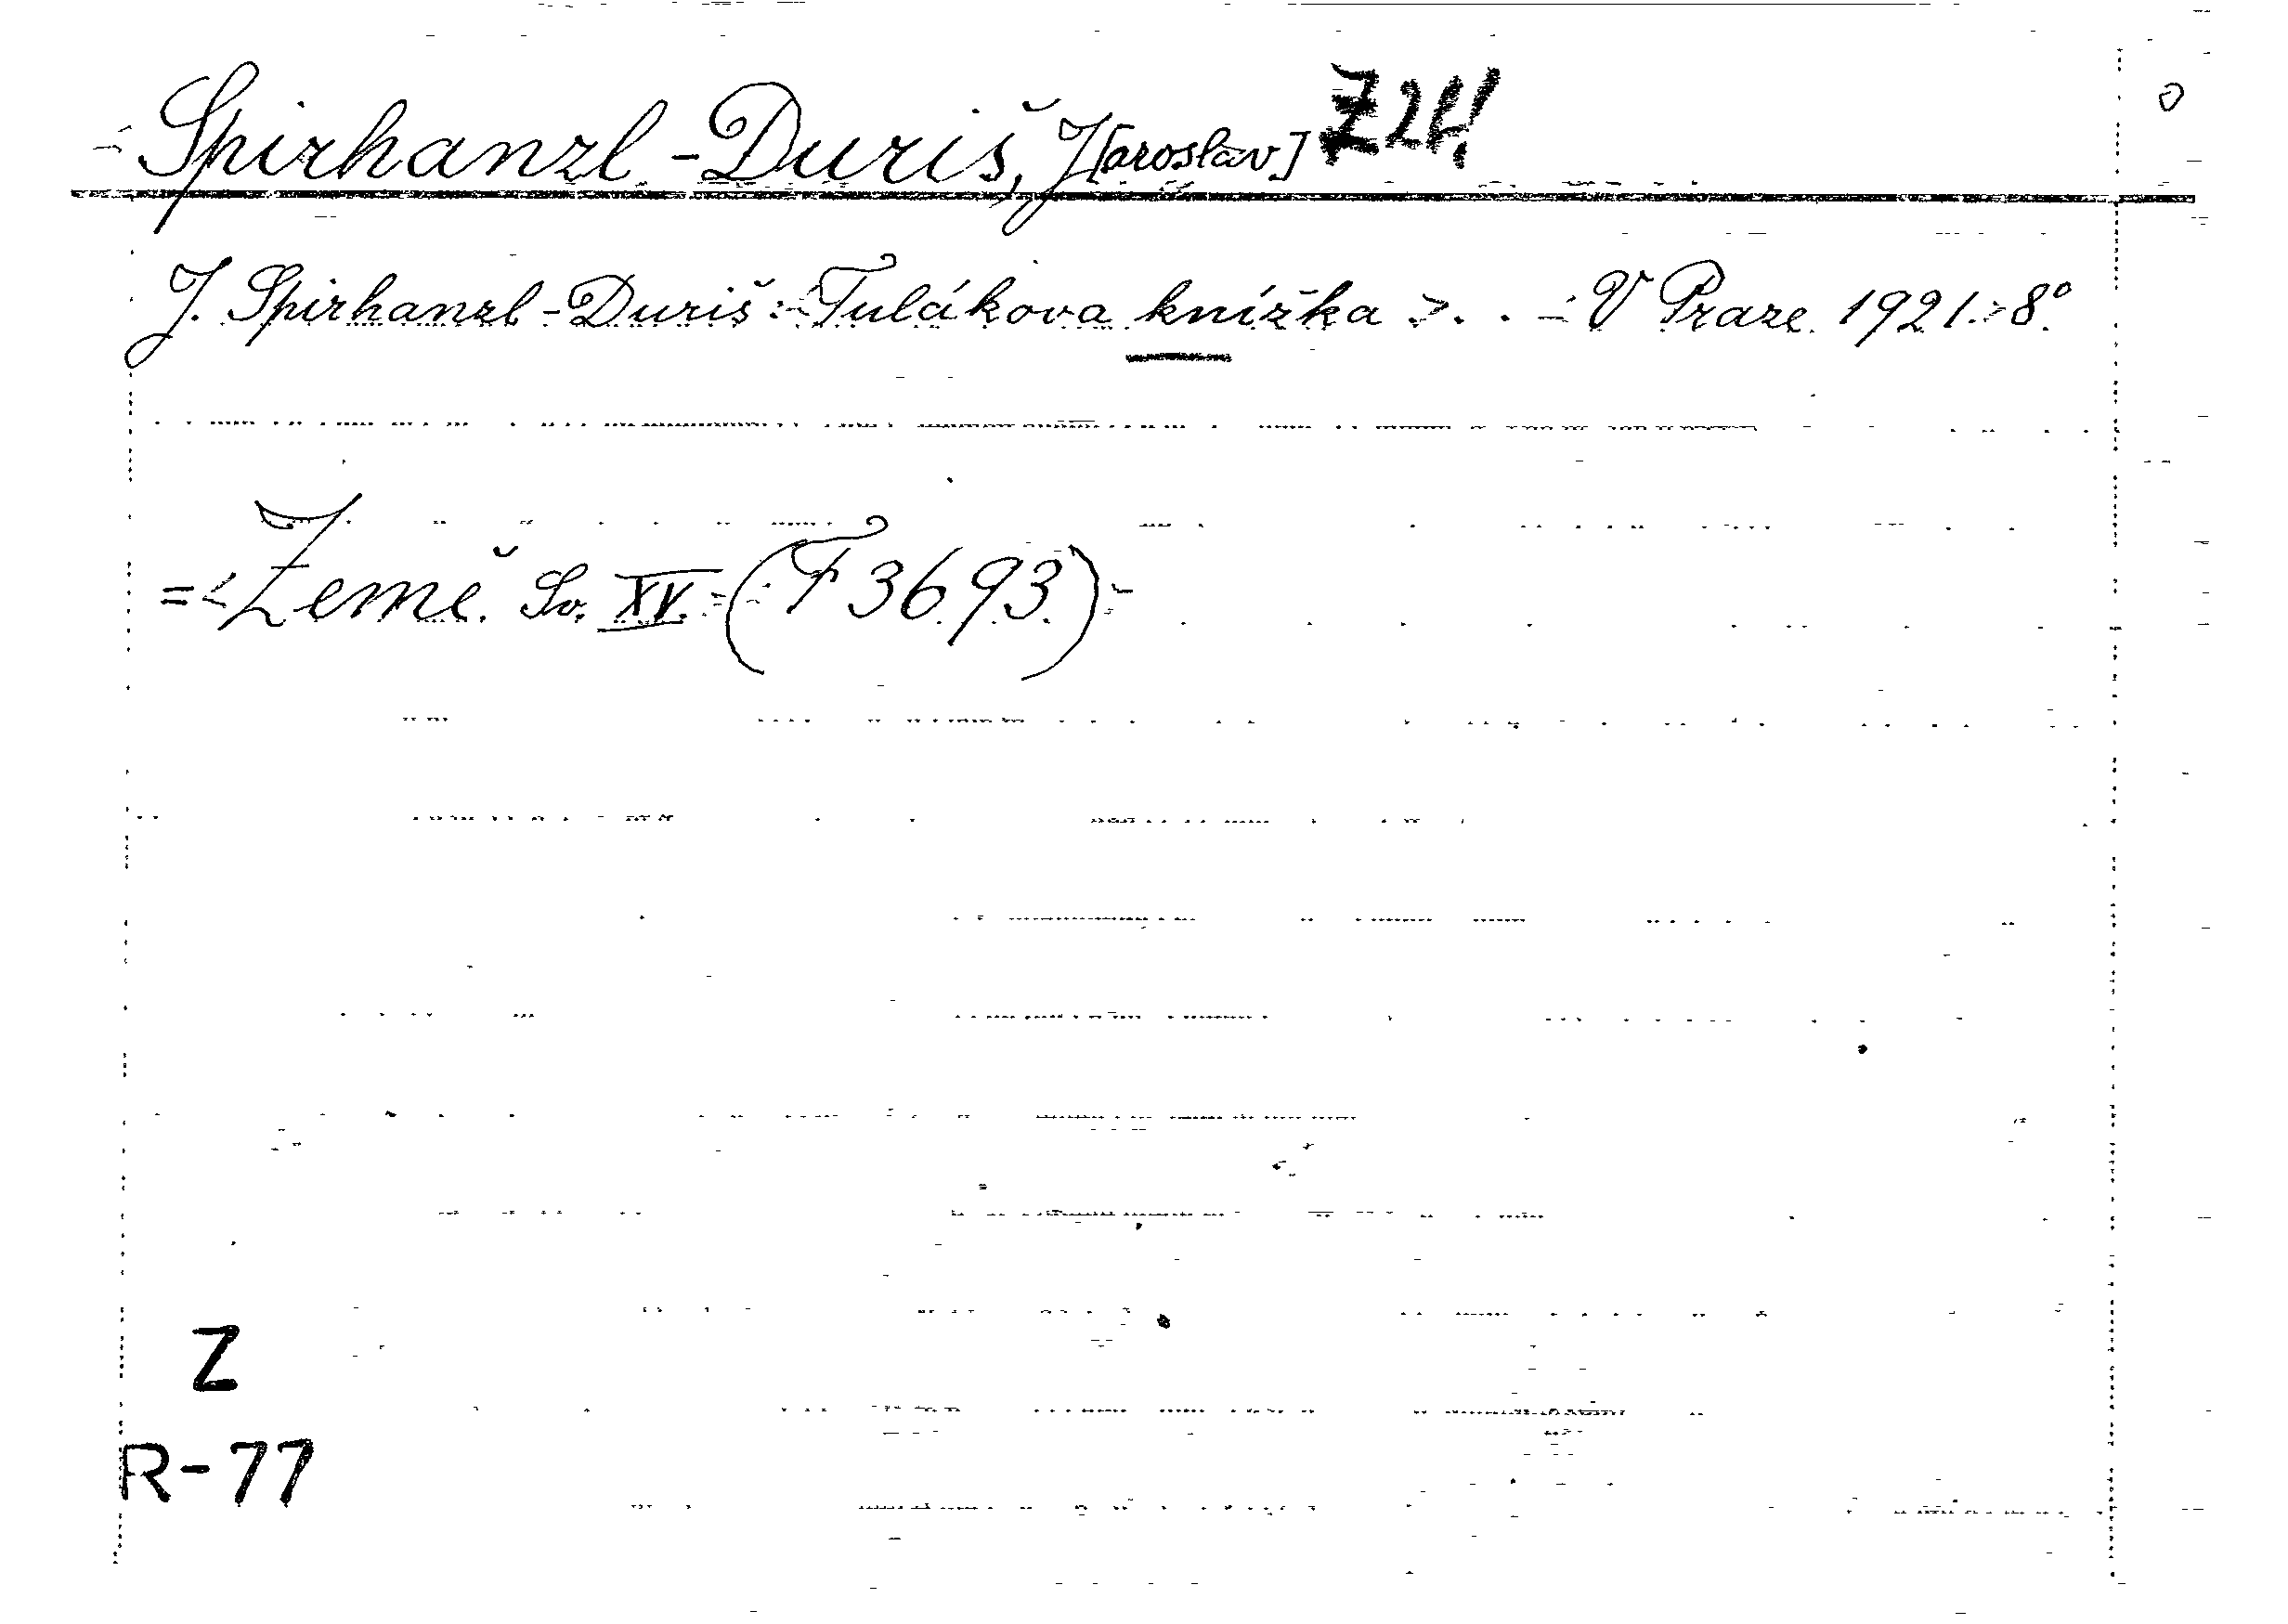 Spirhanzl-Duriš, J[aroslav]
J. Spirhanzl-Duriš: Tulákova knížka . . - V Praze. 1921. 8°.
= Země. Sv. XV. (F 3693.)
Z
R-77